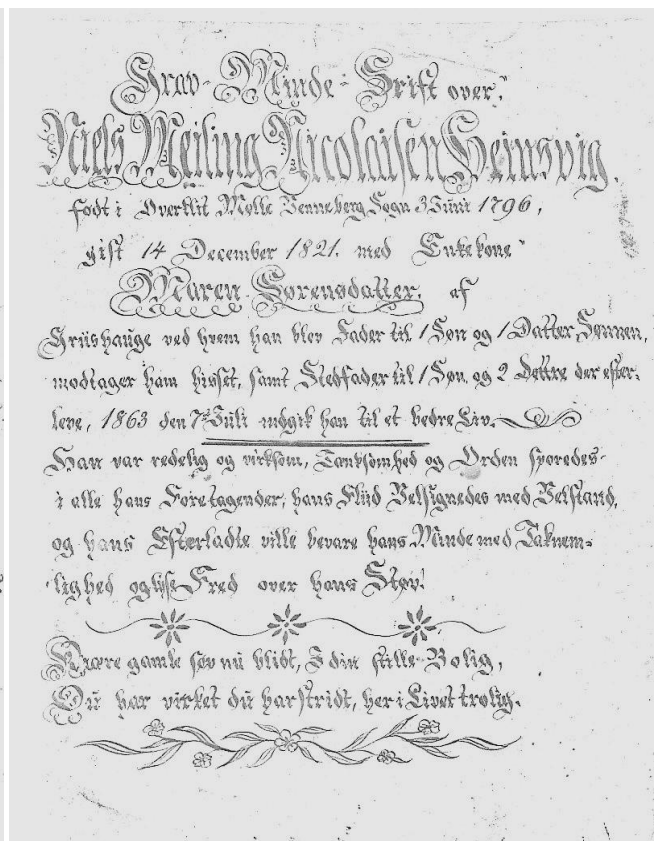 Grav-Minde-Srift over,
Niels Meiling Nicolaisen Heinsvig.
født i Overklit Mølle Tenneberg Sogn 3 Juni 1796,
gift 14 December 1821. med Enkekone
Maren Sørensdatter, af
Griishauge ved hvem han blev Fader til 1 Søn og 1 Datter, Sønnen,
modtager ham hisset, samt Stedfader til 1 Søn, og 2 Døttre der efter-
leve, 1863 den 7de Juli indgik han til et bedre Liv.
Han var redelig og virksom, Tænksomhed og Orden sporedes-
i alle hans Foretagender, hans Fliid Velsignedes med Velstand,
og hans Efterladte ville bevare hans Minde med Taknem-
lighed og lyse Fred over hans Støv!
Kjære gamle søv nu blidt, I din stille Bolig,
Du har virket du har stridt, her i Livet trolig.